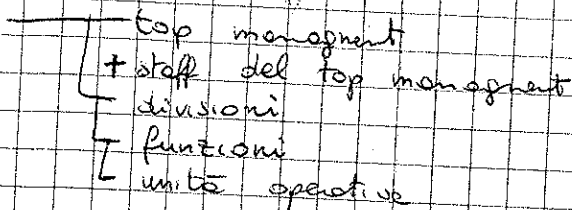 top managment
+ staff del top managment
divisioni
funzioni
unità operative